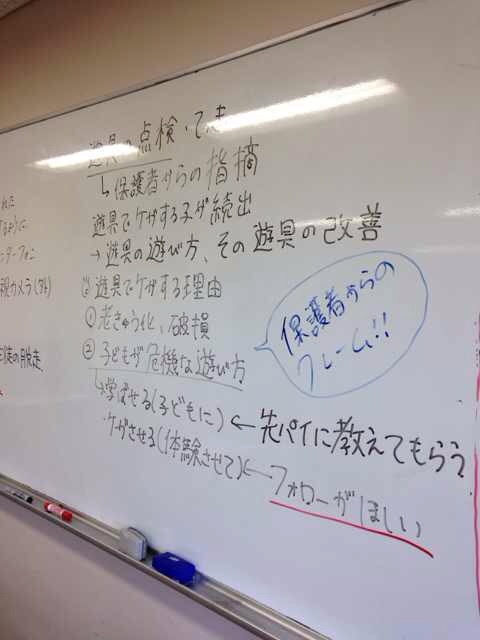 れた
ように
ンターフォン
視カメラ
徒の脱走
遊具の点検・
↳保護者からの指摘
遊具でケガする子が続出
→遊具の遊び方、その遊具の改善
遊具でケガする理由
①老きゅう化、破損
②子どもが危機な遊び方
↳学ばせる(子どもに)←先パイに教えてもらう
・ケガさせる(体験させて)←フォローがほしい
保護者からの
クレーム!!